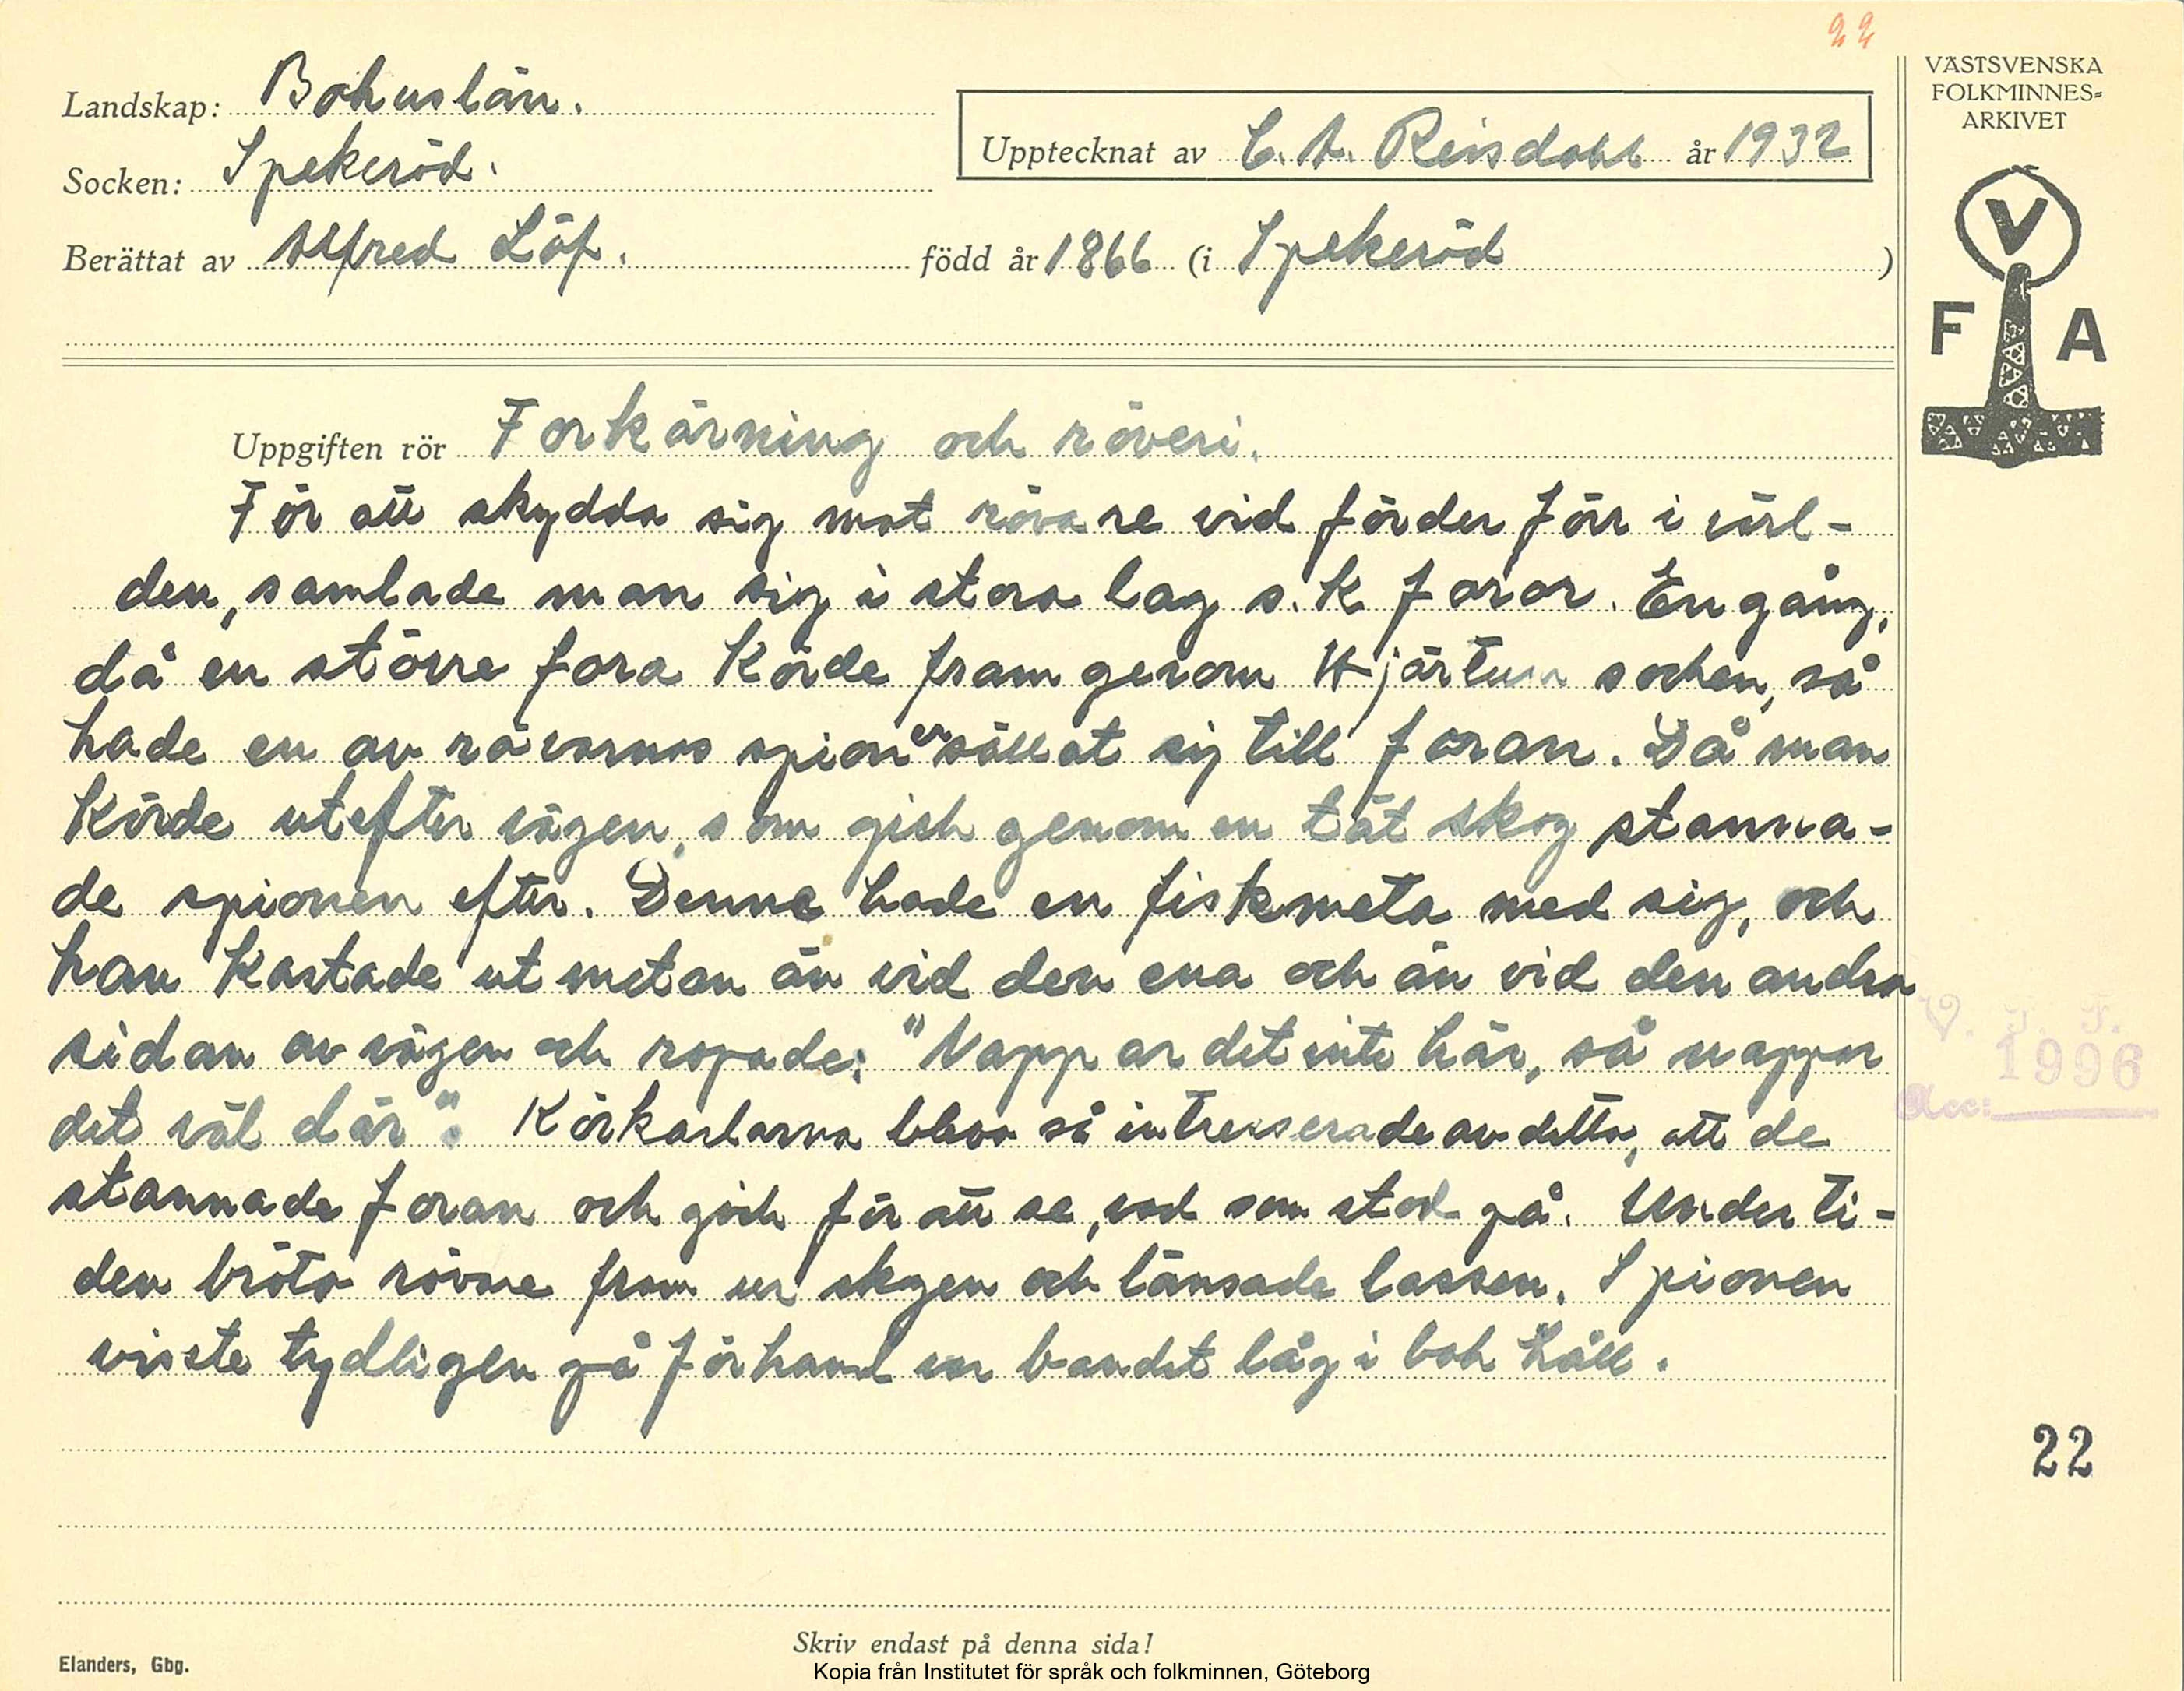 22
VÄSTSVENSKA
FOLKMINNES=
ARKIVET
Landskap: Bohuslän.
Upptecknat av C. A. Reisdahl år 1932
Socken: Spekeröd.
Berättat av Alfred Löf. född år 1866 (i Spekeröd )
V
F A
Uppgiften rör Forkörning och röveri.
För att skydda sig mot rövare vid färder förr i värl-
den, samlade man sig i stora lag s.k foror. En gång,
då en större fora körde fram genom Hjärtum socken, så
hade en av rövarnas spioner sällat sig till foran. Då man
körde utefter vägen, som gick genom en tät skog stanna-
de spionen efter. Denne hade en fiskmeta med sig, och
han kastade ut metan än vid den ena och än vid den andra
sidan av vägen och ropade: "Nappar det inte här, så nappar
det väl där". Körkarlarna blevo så intresserade av detta, att de
stannade foran och gick för att se, vad som stod på. Under ti-
den bröto rövare fram ur skogen och länsade lassen. Spionen
visste tydligen på förhand var bandet låg i bak håll.
V. F. F.
1996
Acc:
22
Skriv endast på denna sida!
Elanders, Gbg.
Kopia från Institutet för språk och folkminnen, Göteborg